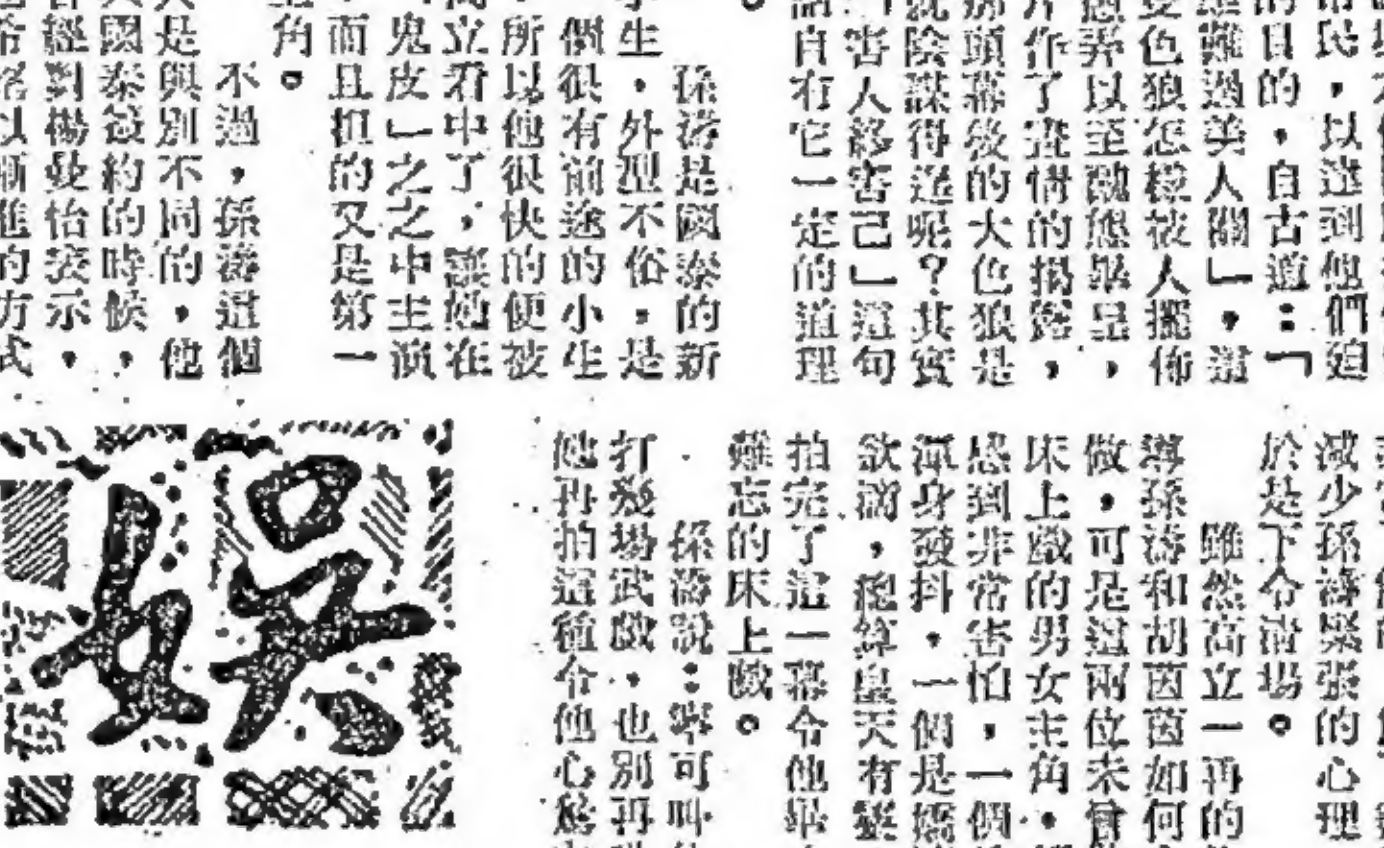 市民，以達到他們迫
的目的，自古道：「
難過美人關」，還
色狼怎樣被人擺佈
弄以至醜態畢呈，
作了盡情的揭露，
頭幕後的大色狼是
陰謀得逞呢？其實
「害人終害己」這句
話自有它一定的道理
。
孫濤是國泰的新
生，外型不俗，是
個很有前途的小生
，所以他很快的便被
高立看中了，讓他在
「鬼皮」之之中主演
，而且担的又是第一
主角。
不過，孫濤這個
人是與別不同的，他
與國泰簽約的時候，
曾經對楊曼怡表示，
以漸進的方式
减少孫濤緊張的心理
於是下令清場。
雖然高立一再的
導孫濤和胡茵茵如何
做，可是這兩位未曾
床上戲的男女主角，
感到非常害怕，一個
渾身發抖，一個是嬌
欲滴，總算皇天有
拍完了這一幕令他畢
難忘的床上戲。
孫濤說：寧可叫
打幾場武戲，也別再
他再拍這種令他心
娛